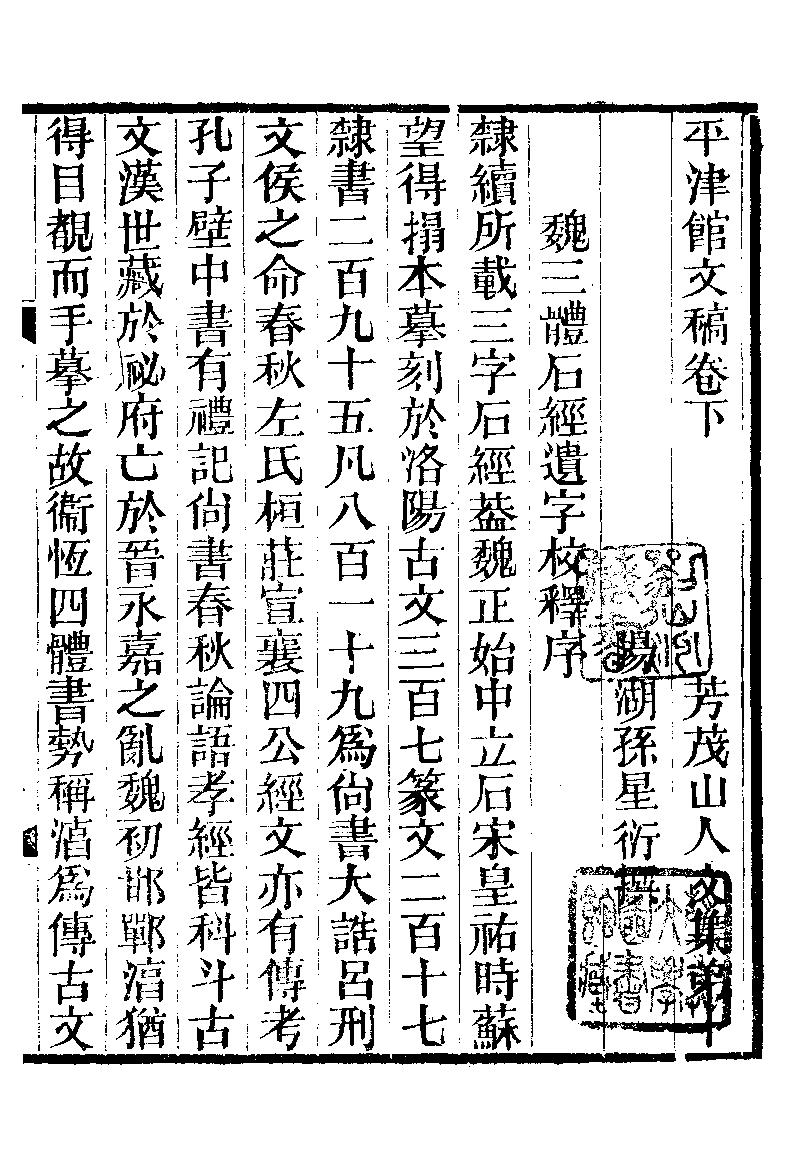 平津館文稿卷下　芳茂山人文集弟十
陽湖孫星衍撰
魏三體石經遺字校釋序
隸續所載三字石經葢魏正始中立石宋皇祐時蘇
望得搨本摹刻於洛陽古文三百七篆文二百十七
隸書二百九十五凡八百一十九爲尙書大誥呂刑
文侯之命春秋左氏桓莊宣襄四公經文亦有傳考
孔子壁中書有禮記尙書春秋論語孝經皆科斗古
文漢世藏於祕府亡於晉永嘉之亂魏初邯鄲湻猶
得目覩而手摹之故衞恆四體書勢稱湻爲傳古文